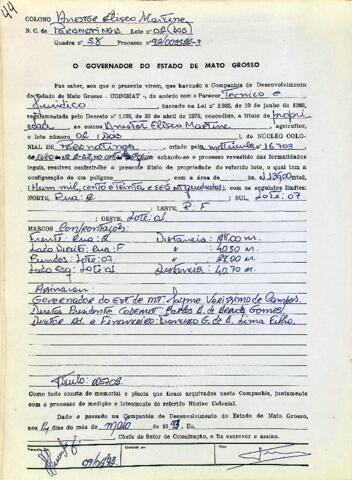 44
COLONO Anestor Eliseo Martine
N. C. de Paranatinga Lote nº 02 (dois)
Quadra nº 58 Processo nº
O GOVERNADOR DO ESTADO DE MATO GROSSO
Faz saber, aos que o presente virem, que havendo a Companhia de Desenvolvimento
do Estado de Mato Grosso - CODEMAT -, de acordo com o Parecer Tecnico e
Juridico, baseado na Lei nº 2.933, de 19 de junho de 1969,
regulamentada pelo Decreto nº de 20 de abril de 1970, concedido, a título de
ao colono Anestor Eliseo Martine, agricultor,
o lote número 02 (dois) do NÚCLEO COLO-
NIAL DE Paranatinga, criado pela matricula nº 16.703
achando-se o processo revestido das formalidades
legais, resolveu conferir-lhe o presente título de propriedade do referido lote, o qual tem a
configuração de um polígono com a área de
(Hum mil, cento e trinta e seis m quadrados), com os seguintes limites:
NORTE Rua: 2; SUL, Lote: 07
; LESTE, R. F
; OESTE, Lote: 01
MARCOS Confrontações:
Frente: Rua: 2 Distancia: 28,00 m.
Lado Direito: Rua: F " 40,50 m.
Fundos: Lote: 07 " 28,00 m.
Lado Esq: Lote: 01 Distancia: 40,70 m.
Assinaram:
Governador do Est. de MT Jayme Verissimo de Campos.
Diretor Presidente CODEMAT: Carlos A. de Arruda Gomes.
Diretor Ad. e Financeiro: G. de A. Lima Filho.
Titulo: 00708.
Como tudo consta de memorial e planta que ficam arquivados nesta Companhia, juntamente
com o processo de medição e loteamento do referido Núcleo Colonial.
Dado e passado na Companhia de Desenvolvimento do Estado de Mato Grosso,
aos 14 dias do mês de maio de 1993. Eu,
Chefe do Setor de Colonização, o fiz escrever e assino.